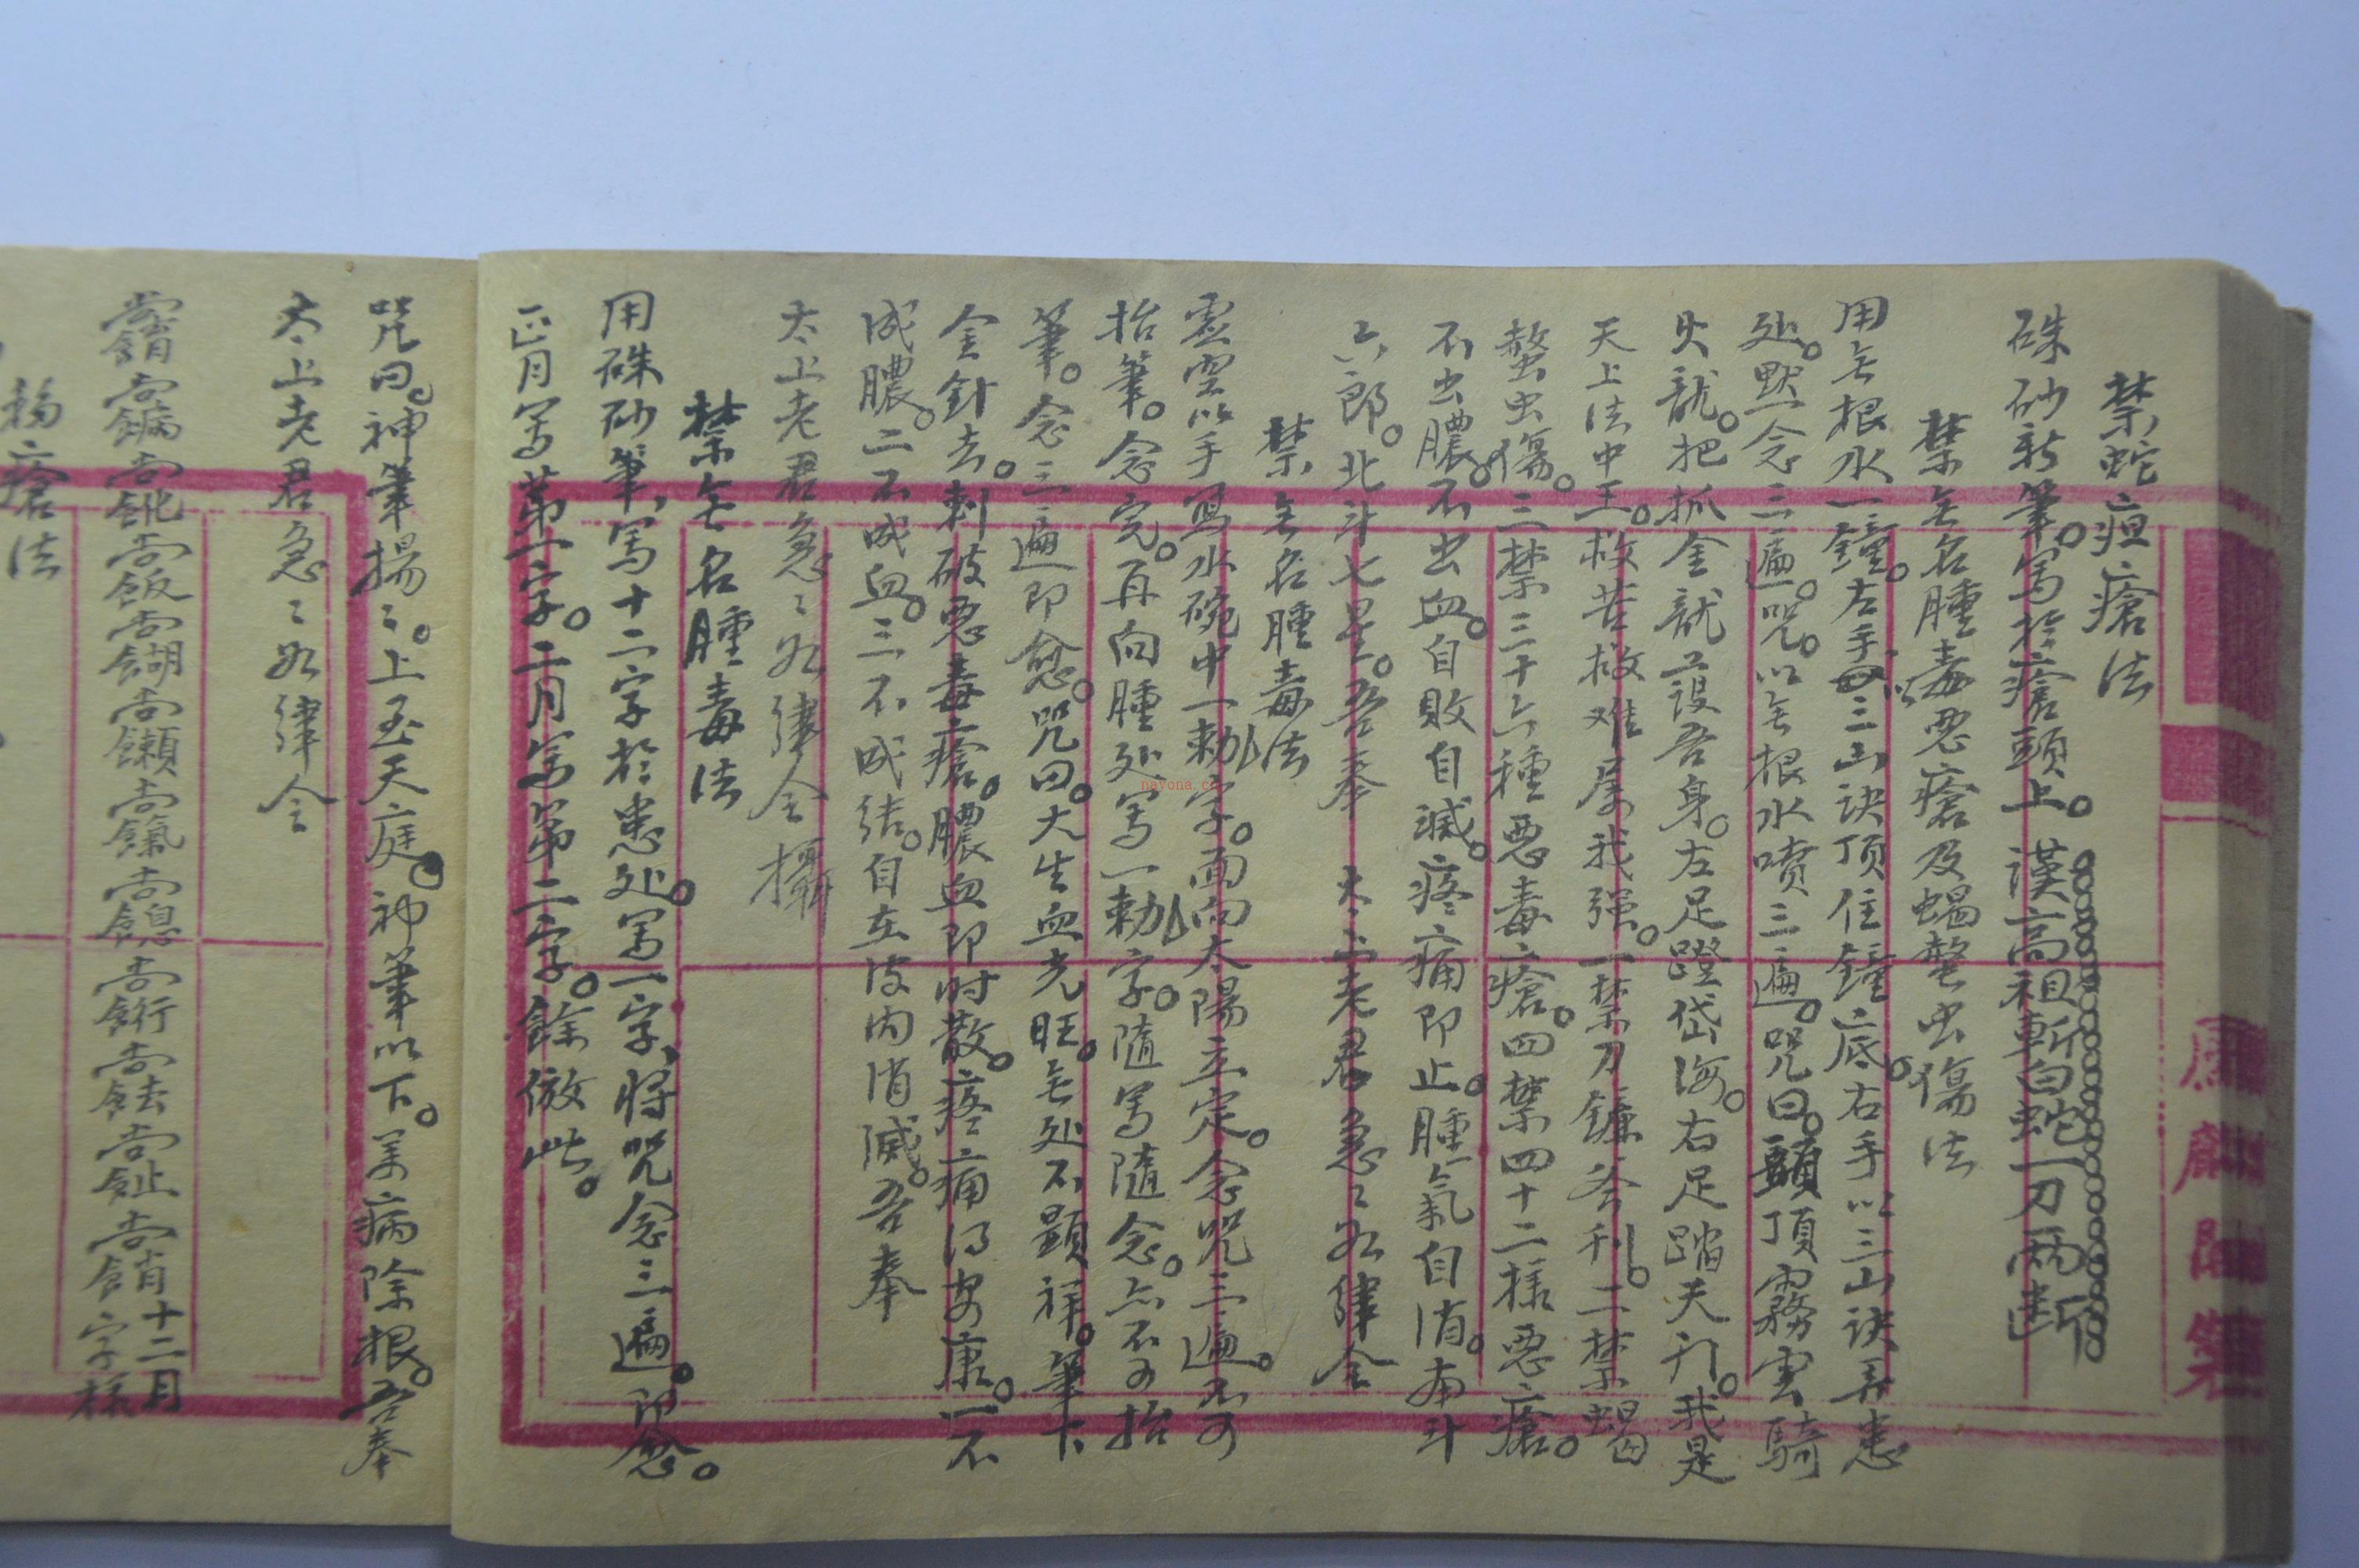 禁蛇疸瘡法
硃砂新筆。寫於瘡頭上。漢高祖斬白蛇一刀兩断
禁无名腫毒惡瘡及蝎螫虫傷法
用无根水一鐘。左手以三山訣頂住鐘底。右手以三山訣弄患
处。默念三遍。咒。以无根水噴三遍。咒曰。頭頂霧雲騎
火龍。把抓金龍護吾身。左足蹬岱海。右足踏天行。我是
天上法中王。救苦救难属我强。一禁刀鐮斧刊。二禁蝎
螫虫傷。三禁三十六種惡毒瘡。四禁四十二様惡瘡。
不出膿。不出血。自敗自滅。疼痛即止。腫氣自消。南斗
六郎。北斗七星。吾奉 太上老君急〻如律令
禁无名腫毒法
雲空以手寫水碗中一勅字。面向太陽立定。念咒三遍。不可
抬筆。念完。再向腫处寫一勅字。隨寫隨念。亦不可抬
筆。念三遍即愈。咒曰。大生血光旺。无处不顕祥。筆下
金針去。刺破惡毒瘡。膿血即时散。疼痛得安康。一不
成膿。二不成血。三不成結。自在皮肉消滅。吾奉
太上老君急〻如律令攝
禁无名腫毒法
用硃砂筆、寫十二字於患处。寫一字、將咒念三遍。即愈。
正月写第一字。二月写第二字。餘倣此。
咒曰。神筆揚〻。上至天庭。神筆以下。業病除根。吾奉
太上老君急〻如律令
十二月
字様
瘡法
nayona.c